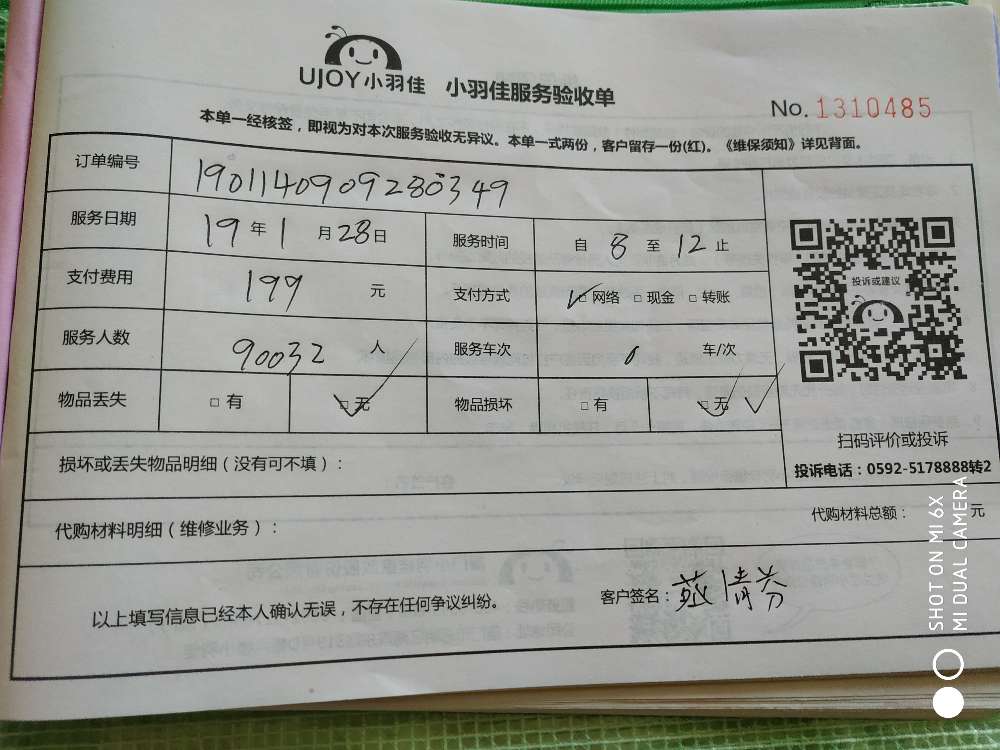 UJOY小羽佳 小羽佳服务验收单
No. 1310485
本单一经核签，即视为对本次服务验收无异议。本单一式两份，客户留存一份(红)。《维保须知》详见背面。
订单编号 1901140909280349
服务日期 19 年 1 月 28 日 服务时间 自 8 至 12 止
支付费用 199 元 支付方式 ☑网络 □现金 □转账
服务人数 90032 人 服务车次 车/次
物品丢失 □有 ☑无 物品损坏 □有 ☑无
投诉或建议
扫码评价或投诉
投诉电话：0592-5178888转2
损坏或丢失物品明细（没有可不填）：
代购材料明细（维修业务）： 代购材料总额： 元
以上填写信息已经本人确认无误，不存在任何争议纠纷。 客户签名： 清芬
SHOT ON MI 6X
MI DUAL CAMERA